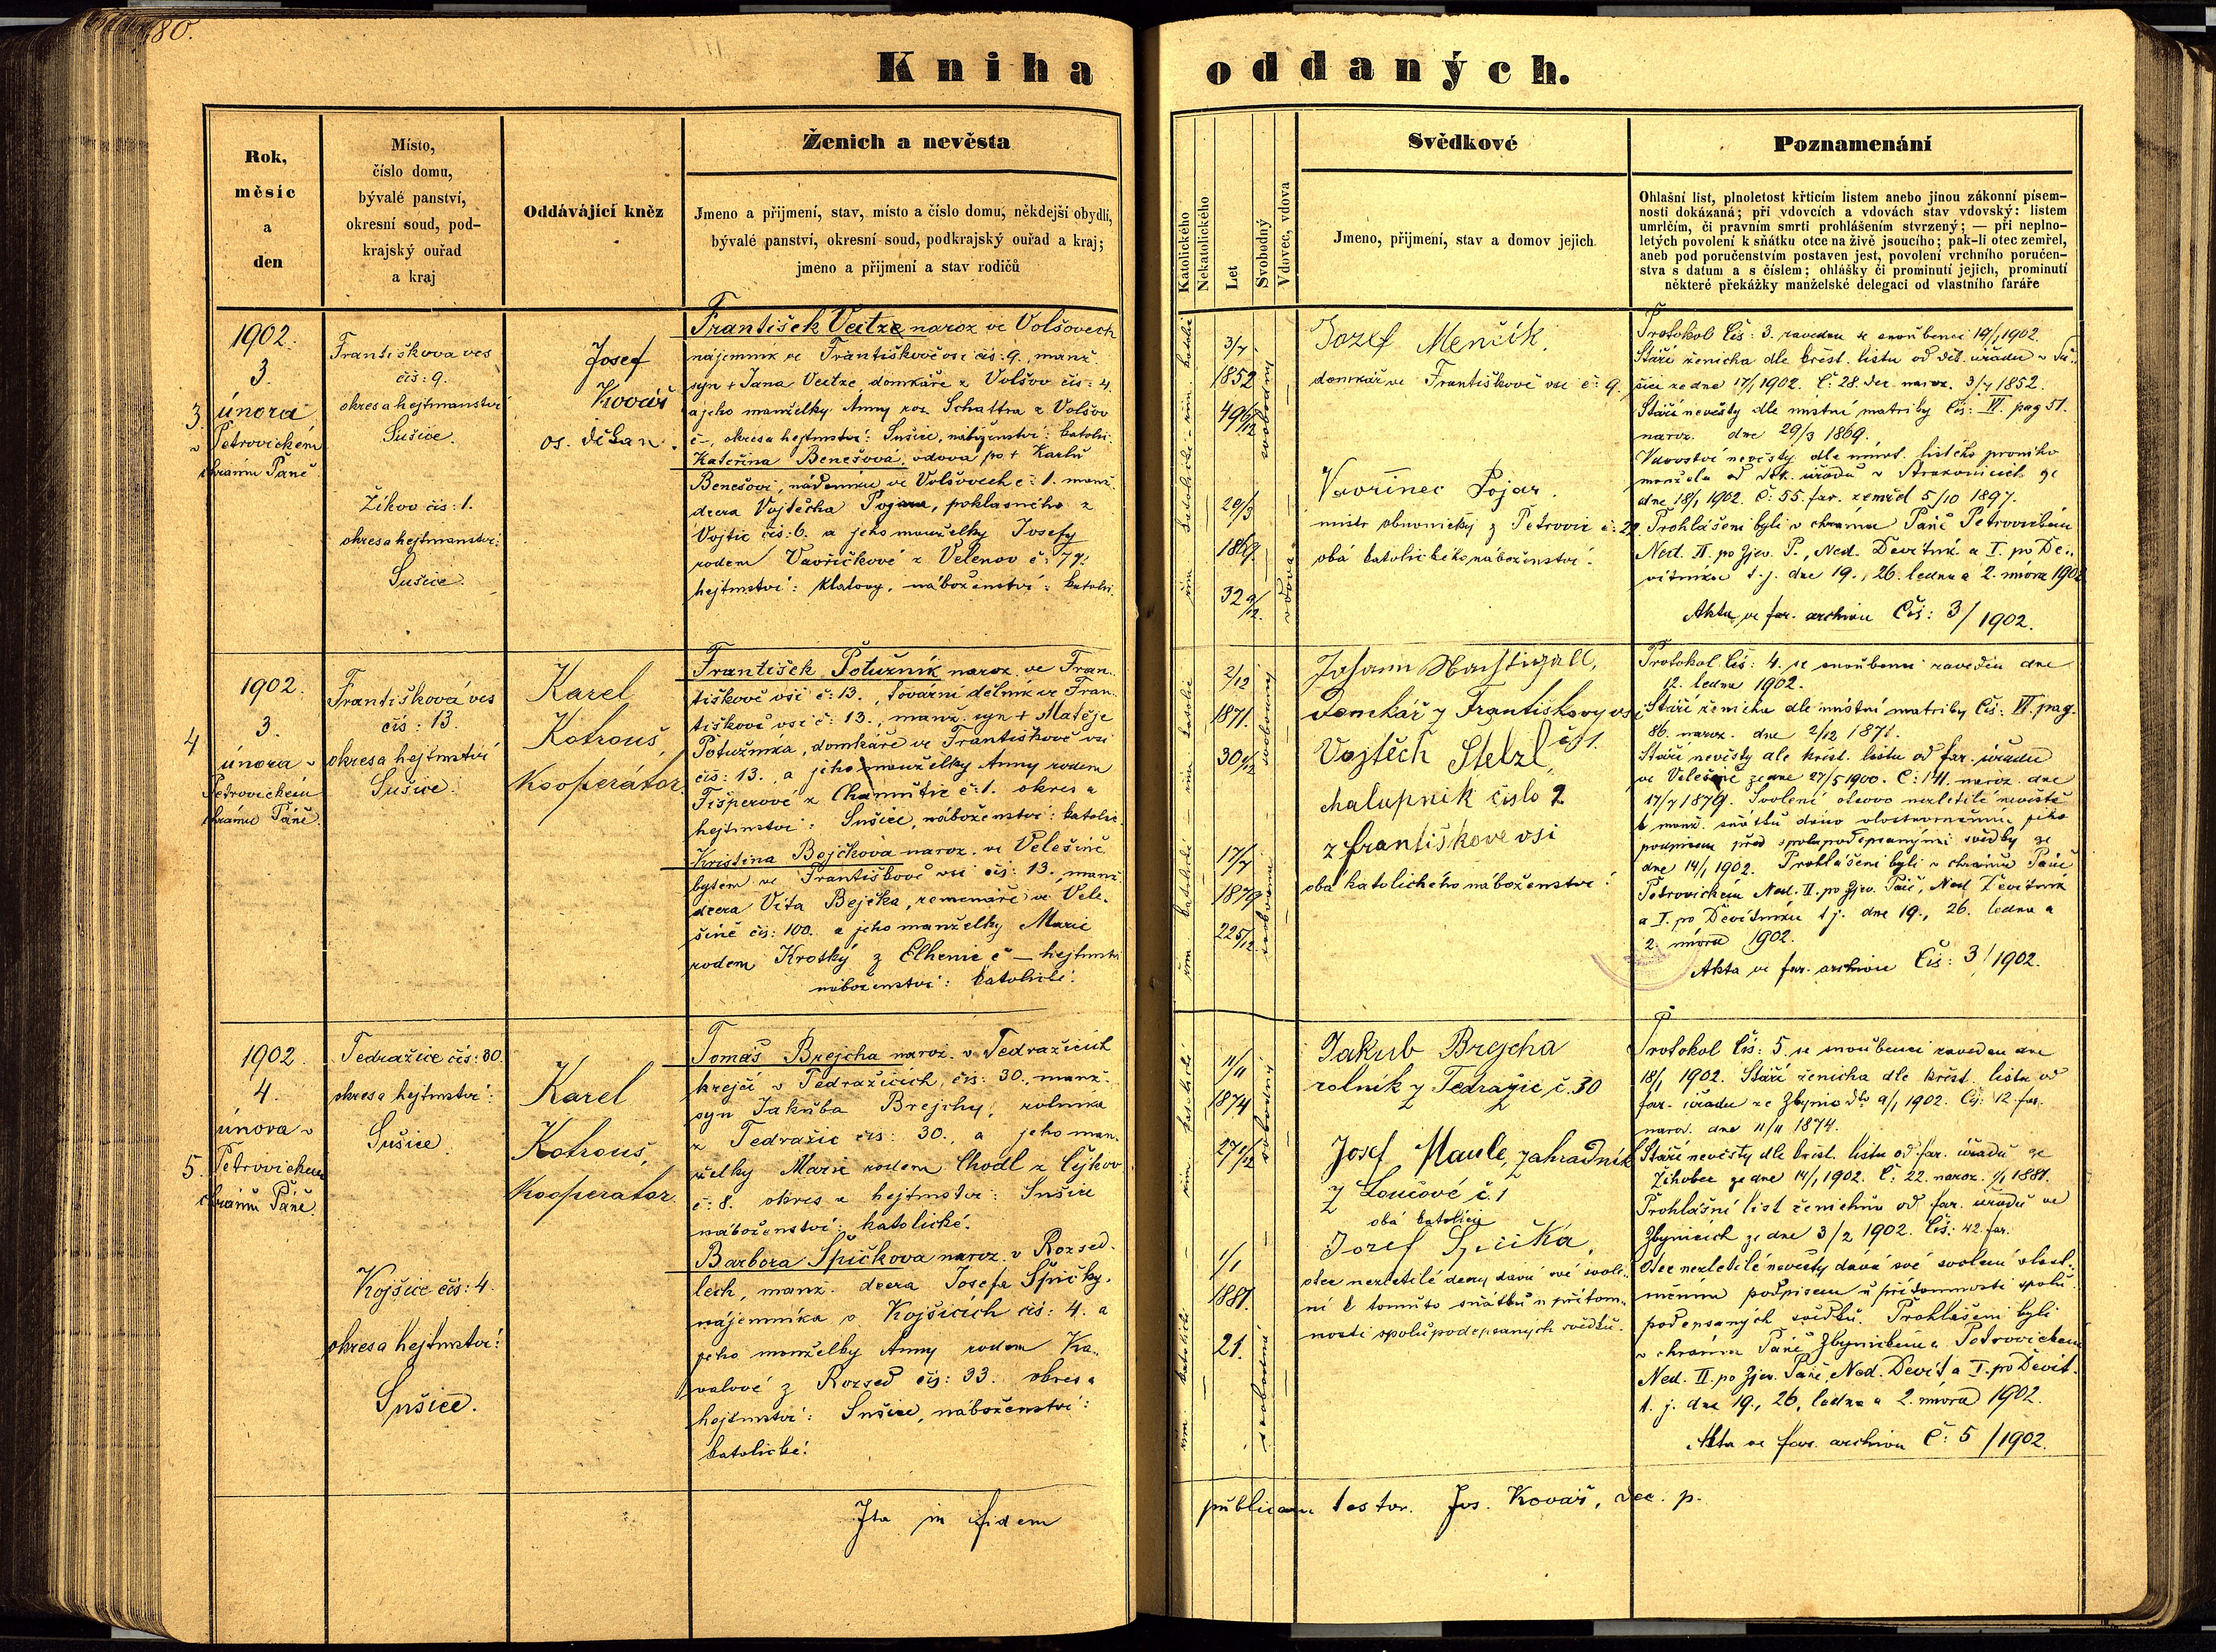 80.
Kniha oddaných.
Rok,
měsíc
a
den
Místo,
číslo domu,
bývalé panství,
okresní soud, pod-
krajský ouřad
a kraj
Oddávající kněz
Ženich a nevěsta
Jmeno a přijmení, stav, místo a číslo domu, někdejší obydlí,
bývalé panství, okresní soud, podkrajský ouřad a kraj;
jmeno a přijmení a stav rodičů
Katolického
Nekatolického
Let
Svobodný
Vdovec, vdova
Svědkové
Jmeno, přijmení, stav a domov jejich
Poznamenání
Ohlašní list, plnoletost křticím listem anebo jinou zákonní písem-
ností dokázaná; při vdovcích a vdovách stav vdovský: listem
umrlčím, či právním smrti prohlášením stvrzený; — při neplno-
letých povolení k sňátku otce na živě jsoucího; pak-li otec zemřel,
aneb pod poručenstvím postaven jest, povolení vrchního poručen-
stva s datum a s číslem; ohlášky či prominutí jejich, prominutí
některé překážky manželské delegací od vlastního faráře
1902.
3.
3. února
v Petrovickém
chrámu Páně
Františkova ves
čís: 9.
okres a hejtmanství
Sušice.
Žikov čís: 1.
okres a hejtmanství:
Sušice.
Josef
Kovář
os. děkan.
František Veitze naroz ve Volšovech
nájemník ve Františkově vsi čís: 9., manž
syn + Jana Veitze domkáře z Volšov čís: 4.
a jeho manželky Anny roz. Schattra z Volšov
č –, okres a hejtmství: Sušice, náboženství: katolic.
Kateřina Benešová, vdova po + Karlu
Benešovi, nádeníku ve Volšovech č: 1. manž.
dcera Vojtěcha Pojara, poklasného z
Vojtic čís: 6. a jeho manželky Josefy
rodem Vavřičkové z Velenov č: 77:
hejtmství: Klatovy, náboženství: katolic.
3/7
1852
49 6/12
svobodný
29/3
1869.
32 9/12.
vdova
Jozef Menčík.
domkář ve Františkově vsi č: 9.
Vavřinec Pojar.
mistr obuvnický z Petrovic č: 22.
obá katolického náboženství.
Protokol čís: 3. zaveden se snoubenci 14/1 1902.
Stáří ženicha dle křest. listu od děk. úřadu v Su-
šici ze dne 17/1 1902. Č: 28. dec. naroz. 3/7 1852.
Stáří nevěsty dle místní matriky Čís: VI. pag 51.
naroz. dne 29/3 1869.
Vdovství nevěsty dle úmrt. listého prvního
manžela od děk. úřadu v Strakonicích ze
dne 18/1 1902. Č: 55. far. zemřel 5/10 1897.
Prohlášeni byli v chrámu Páně Petrovickém
Ned. II. po Zjev. P., Ned. Devítník a I. po De-
vítníku t. j. dne 19., 26. ledna a 2. února 1902
Akta ve far. archivu Čís: 3/1902.
4
1902.
3.
února v
Petrovickém
chrámu Páně.
Františkova ves
čís: 13.
okres a hejtmství
Sušice.
Karel
Kotrouš,
Kooperátor.
František Potužník naroz. ve Fran-
tiškově vsi č: 13., tovární dělník ve Fran-
tiškově vsi č: 13., manž. syn + Matěje
Potužníka, domkáře ve Františkově vsi
čís: 13., a jeho manželky Anny rodem
Fišperové z Chamutic č: 1. okres a
hejtmství: Sušice, náboženství: katolic.
Kristina Bejčková naroz. ve Velešíně
bytem ve Františkově vsi čís: 13., manž
dcera Víta Bejčka, řemenáře ve Vele-
šíně čís: 100. a jeho manželky Marie
rodem Krotký z Elhenic č – hejtmství
náboženství: katolické.
2/12
1871.
30 2/12
svobodný
17/7
1879
22 5/12.
svobodná
Johann Nachtigall,
domkář z Františkovy vsi
č 1.
Vojtěch Stelzl,
chalupník číslo 2
z františkove vsi
obá katolického náboženství.
Protokol čís: 4. se snoubenci zaveden dne
12. ledna 1902.
Stáří ženicha dle místní matriky Čís: VI. pag.
86. naroz. dne 2/12 1871.
Stáří nevěsty dle křest. listu od far. úřadu
ve Velešíně ze dne 27/5 1900. Č: 141. naroz. dne
17/7 1879. Svolení otcovo nezletilé nevěstě
k manž. sňátku dáno vlastnoručním jeho
podpisem před spolupodepsanými svědky ze
dne 14/1 1902. Prohlášeni byli v chrámu Páně
Petrovickém Ned. II. po Zjev. Páně, Ned. Devítník
a I. po Devítníku t. j. dne 19., 26. ledna a
2. února 1902.
Akta ve far. archivu Čís: 3/1902.
1902.
4.
února v
5. Petrovickém
chrámu Páně.
Tedražice čís: 30.
okres a hejtmství:
Sušice
Kojšice čís: 4.
okres a hejtmství:
Sušice.
Karel
Kotrouš,
Kooperátor
Tomáš Brejcha naroz. v Tedražicích
krejčí v Tedražicích, čís: 30., manž.
syn Jakuba Brejchy, rolníka
z Tedražic čís: 30., a jeho man-
želky Marie rodem Chodl z Čejkov
č: 8. okres a hejtmství: Sušice
náboženství: katolické.
Barbora Špičkova naroz. v Rozsed-
lech, manž. dcera Josefa Špičky,
nájemníka v Kojšicích čís: 4. a
jeho manželky Anny rodem Ko-
valové z Rozsed čís: 33. okres a
hejtmství: Sušice, náboženství:
katolické.
11/11
1874
27 2/12
svobodný
1/1
1881.
21.
svobodná
Jakub Brejcha
rolník z Tedražic č. 30
Josef Maule, zahradník
z Loučové č. 1
obá katolíci
Jozef Špička,
otec nezletilé dcery dává své svole-
ní k tomuto sňátku u přítom-
nosti spolupodepsaných svědků.
Protokol čís: 5. se snoubenci zaveden dne
18/1 1902. Stáří ženicha dle křest. listu od
far. úřadu ze Zbynic dto 9/1 1902. Čís: 12 far.
naroz. dne 11/11 1874.
Stáří nevěsty dle křest. listu od far. úřadu ze
Žihobec ze dne 14/1 1902. Č: 22. naroz. 1/1 1881.
Prohlášní list ženichův od far. úřadu ve
Zbynicích ze dne 3/2 1902. Čís: 42 far.
Otec nezletilé nevěsty dává své svolení vlast-
ničním podpisem u přítomnosti spolu
podepsaných svědků. Prohlášeni byli
v chrámu Páně Zbynickém a Petrovickém
Ned. II. po Zjev. Páně, Ned. Devít a I. po Devít.
t. j. dne 19., 26. ledna a 2. února 1902.
Akta ve far. archivu Č: 5/1902.
Ita in fidem publicam testor. Jos. Kovář, dec. p.